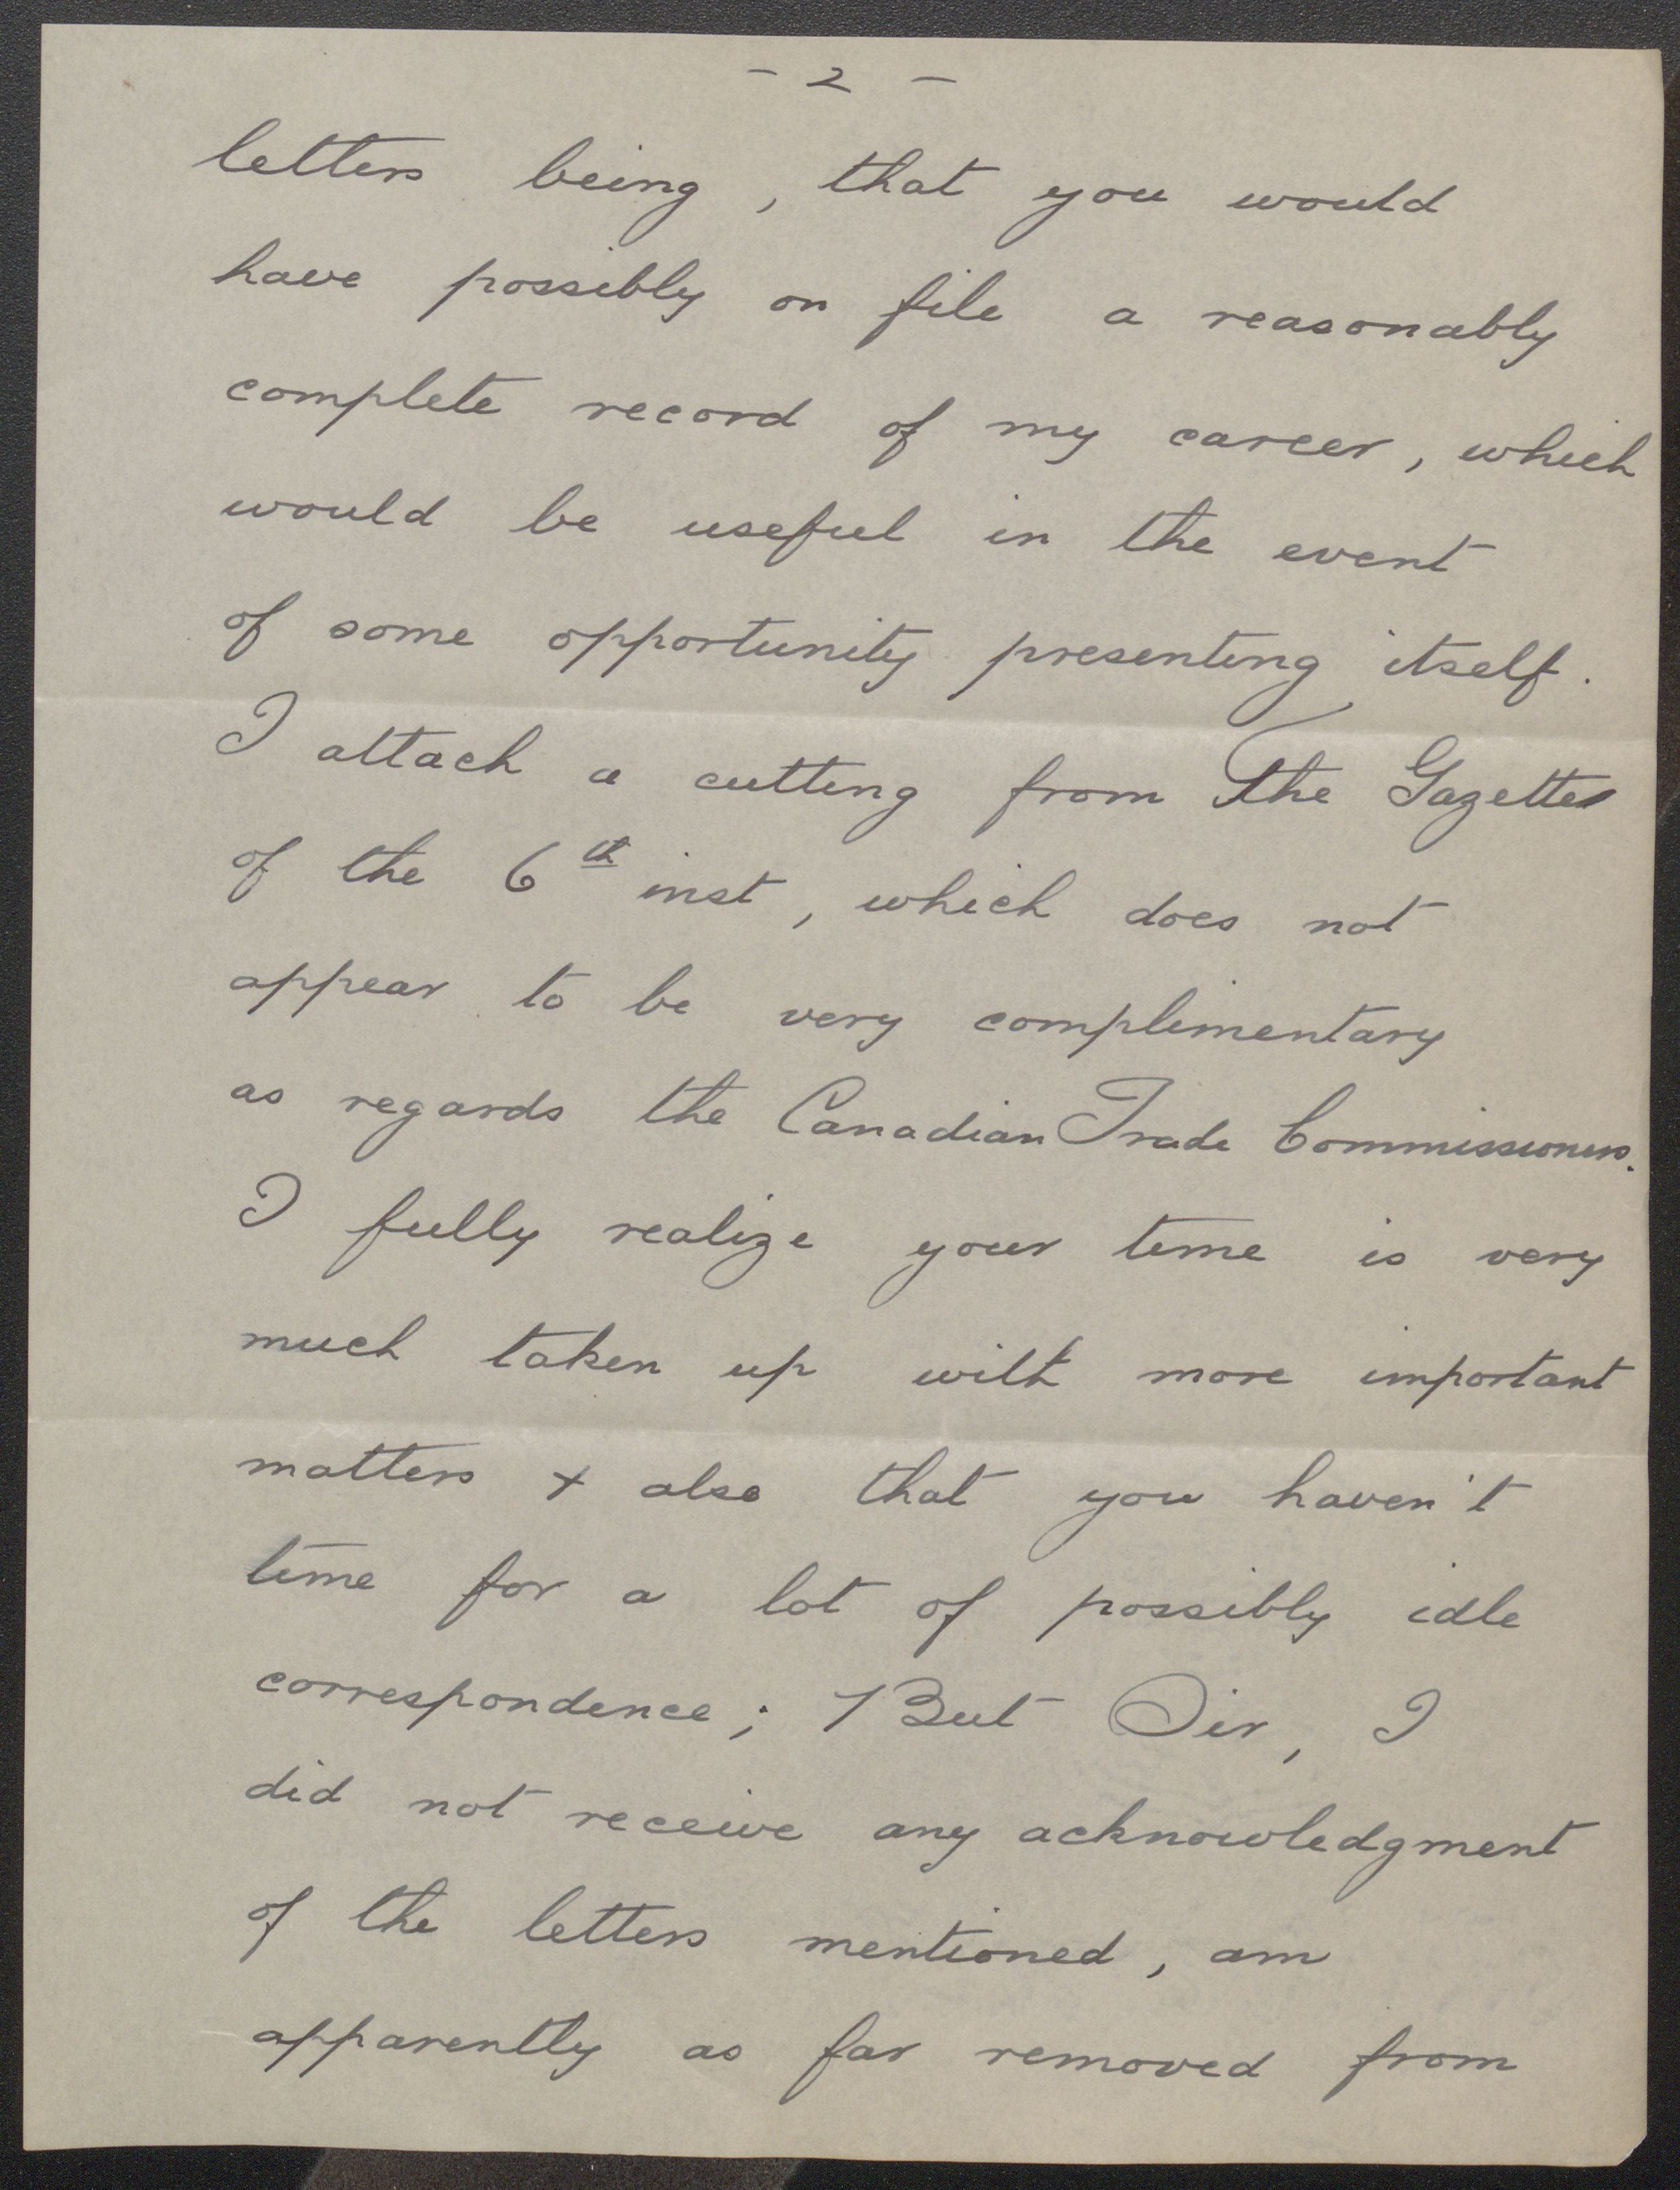 - 2 -
letters being, that you would
have possibly on file a reasonably
complete record of my career, which
would be useful in the event
of some opportunity presenting itself.
I attach a cutting from The Gazette
of the 6th inst, which does not
appear to be very complimentary
as regards the Canadian Trade Commissioners.
I fully realize your time is very
much taken up with more important
matters + also that you haven't
time for a lot of possibly idle
correspondence; But Sir, I
did not receive any acknowledgment
of the letters mentioned, am
apparently as far removed from